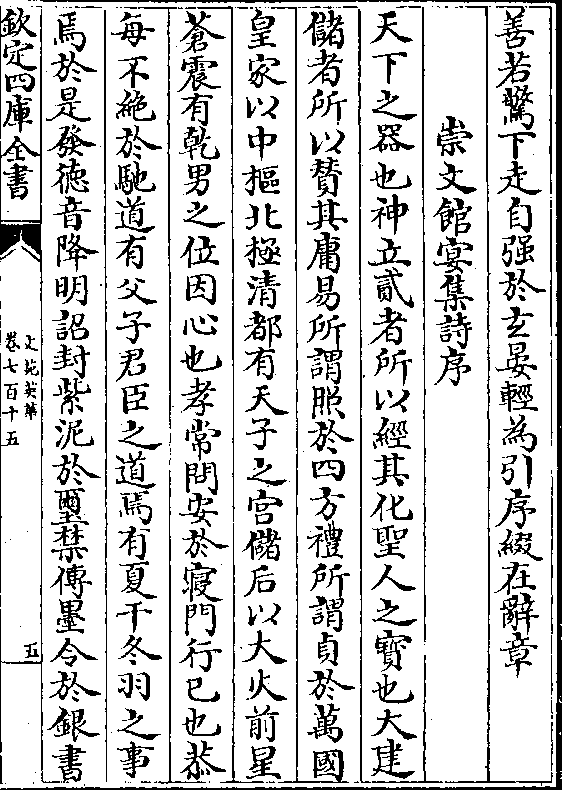 善若驚下走自强於玄晏輕為引序綴在辭章
崇文館宴集詩序
天下之器也神立貳者所以經其化聖人之寳也大建
儲者所以賛其庸易所謂照於四方禮所謂貞於萬國
皇家以中樞北極清都有天子之宫儲后以大火前星
蒼震有乾男之位因心也孝常問安於寢門行已也恭
每不絶於馳道有父子君臣之道焉有夏干冬羽之事
焉於是發徳音降明詔封紫泥於璽禁傳墨令於銀書
欽定四庫全書
文苑英華
卷七百十五
五